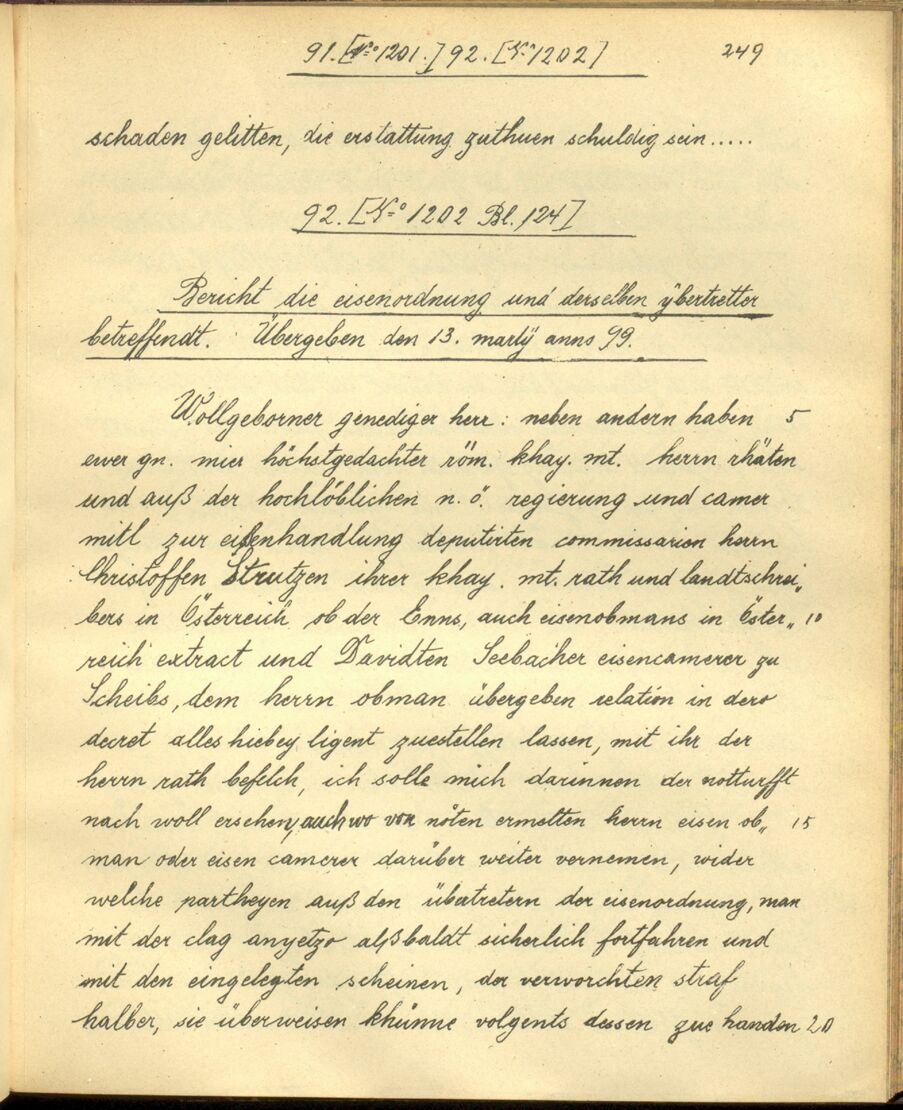 91. [N=o 1201.] 92. [N=o 1202] 249
schaden gelitten, die erstattung zuthuen schuldig sein.....
92. [N=o 1202 Bl. 124]
Bericht die eisenordnung und derselben ÿbertretter
betreffendt. Übergeben den 13. martÿ anno 99.
Wollgeborner genediger herr: neben andern haben 5
ewer gn. mier höchstgedachter röm. khay. mt. herrn rhäten
und auß der hochlöblichen n. ö. regierung und camer
mitl zur eisenhandlung deputirten commissarien herrn
Christoffen Strutzen ihrer khay. mt. rath und landtschrei„
bers in Österreich ob der Enns, auch eisenobmans in Öster„ 10
reich extract und Davidten Seebacher eisencamerer zu
Scheibs, dem herrn obman übergeben relation in dero
decret alles hiebey ligent zuestellen lassen, mit ihr der
herrn rath befelch, ich solle mich darinnen der notturfft
nach woll ersehen, auch wo von nöten ermelten herrn eisen ob„ 15
man oder eisen camerer darüber weiter vernemen, wider
welche partheyen auß den übertretern der eisenordnung, man
mit der clag anyetzo alßbaldt sicherlich fortfahren und
mit den eingelegten scheinen, der verworchten straf
halber, sie überweisen khünne volgents dessen zue handen 20